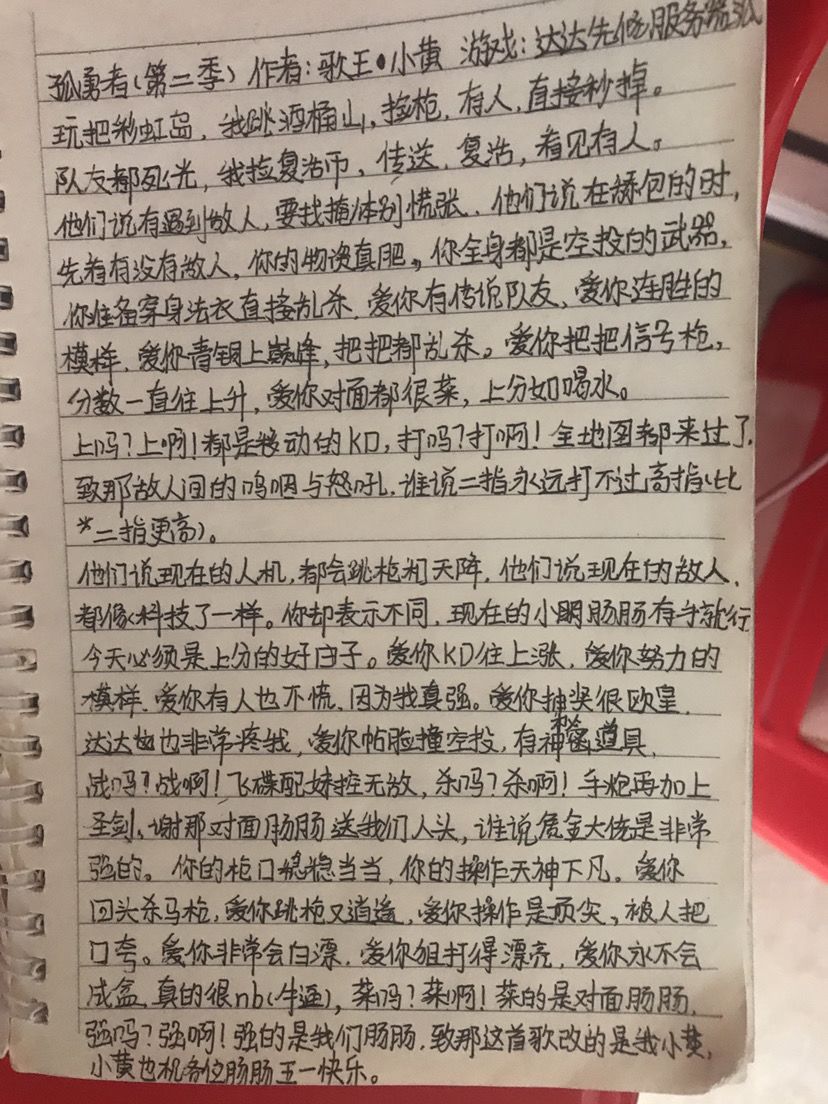 孤勇者(第二季) 作者:歌王•小黄 游戏:达达先 服务器
玩把彩虹岛，我跳酒桶山，捡枪，有人，直接秒掉。
队友都死光，我捡复活币，传送，复活，看见有人。
他们说有遇到敌人，要找掩体别慌张，他们说在舔包的时，
先看有没有敌人，你的物资真肥。你全身都是空投的武器，
你准备穿身法衣直接乱杀，爱你有传说队友，爱你连胜的
模样，爱你青铜上巅峰，把把都乱杀。爱你把把信号枪，
分数一直往上升，爱你对面都很菜，上分如喝水。
上吗?上啊!都是移动的KD，打吗?打啊!全地图都来过了，
致那敌人间的呜咽与怒吼，谁说二指永远打不过高指(比
*二指更高)。
他们说现在的人机，都会跳枪和天降，他们说现在的敌人，
都像科技了一样。你却表示不同，现在的小朋肠肠有手就行
今天必须是上分的好日子。爱你KD往上涨，爱你努力的
模样，爱你有人也不慌，因为我真强。爱你抽奖很欧皇，
达达也非常疼我，爱你帖脸撞空投，有神秘道具，
战吗?战啊!飞碟配妹控无敌，杀吗?杀啊!手炮再加上
圣剑，谢那对面肠肠送我们人头，谁说 金大佬是非常
强的。你的枪口稳稳当当，你的操作天神下凡。爱你
回头杀马枪，爱你跳枪又逍遥，爱你操作是顶尖，被人把
口夸。爱你非常会白漂，爱你狙打得漂亮，爱你永不会
成盒，真的很nb(牛逼)，菜吗?菜啊!菜的是对面肠肠，
强吗?强啊!强的是我们肠肠，致那这首歌改的是我小黄，
小黄也祝各位肠肠五一快乐。